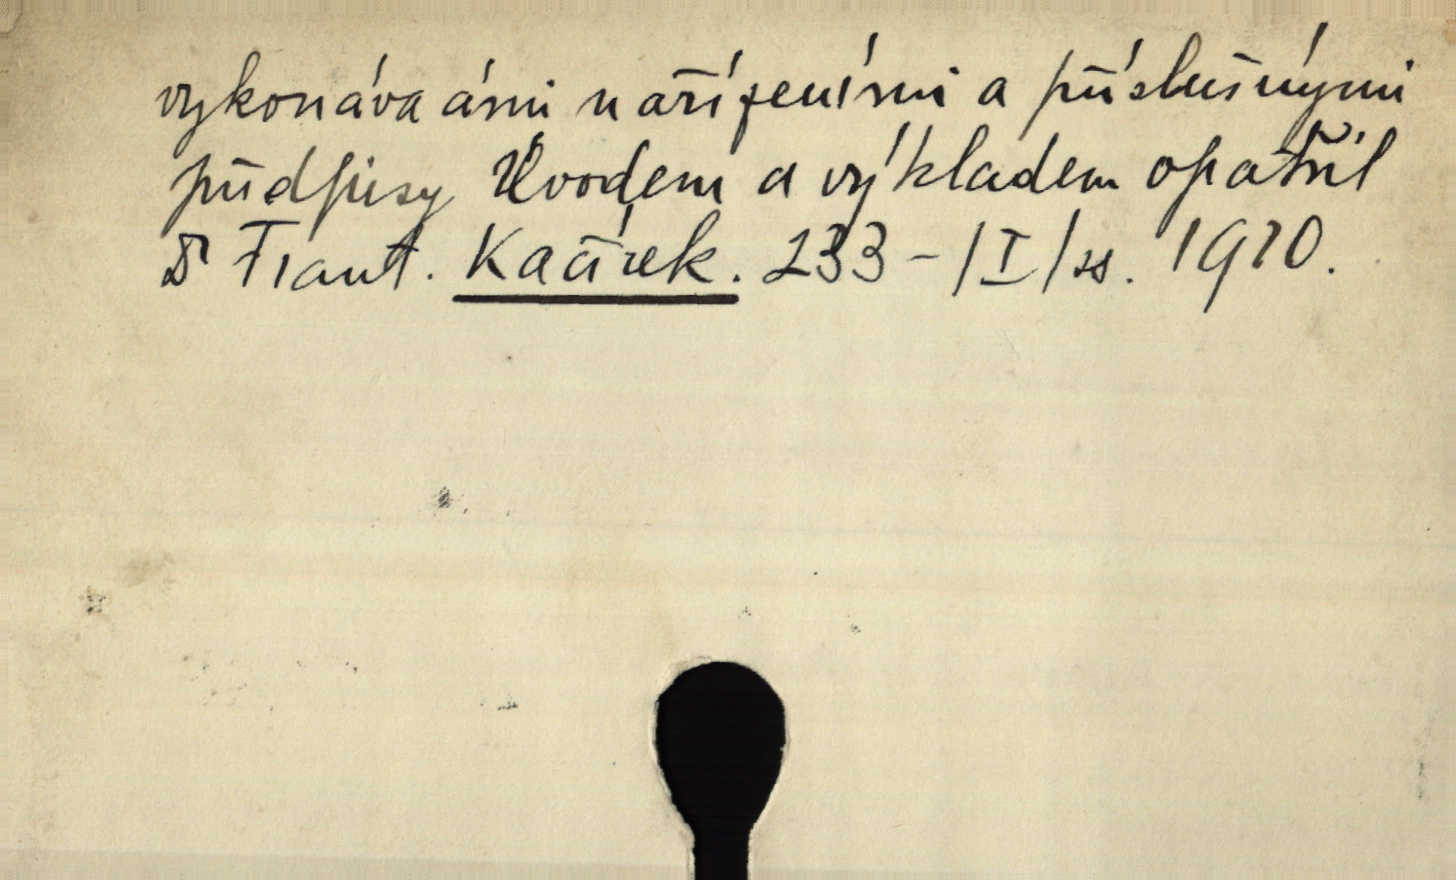 vykonáva ámi nařízeními a příslušnými
předpisy Úvodem a výkladem opatřil
Dr Frant. Kačírek. 233-/I/ss. 1910.